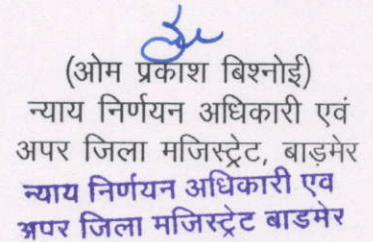 (ओम प्रकाश बिश्नोई)
न्याय निर्णयन अधिकारी एवं
अपर जिला मजिस्ट्रेट, बाड़मेर
न्याय निर्णयन अधिकारी एव
अपर जिला मजिस्ट्रेट बाडमेर